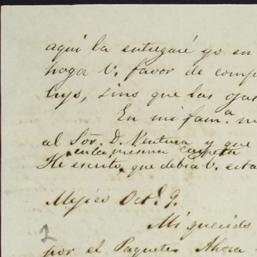 aqui la entregaré yo en
haga V. favor de comp
tujs, sino que las
En mi fam.a n
al Sōr. D. Ventura y que
en la misma carpeta
He escrito, que debia V. esta
Mejico Oct.e 9.
Mi querido
2
por el Paquete. Ahora